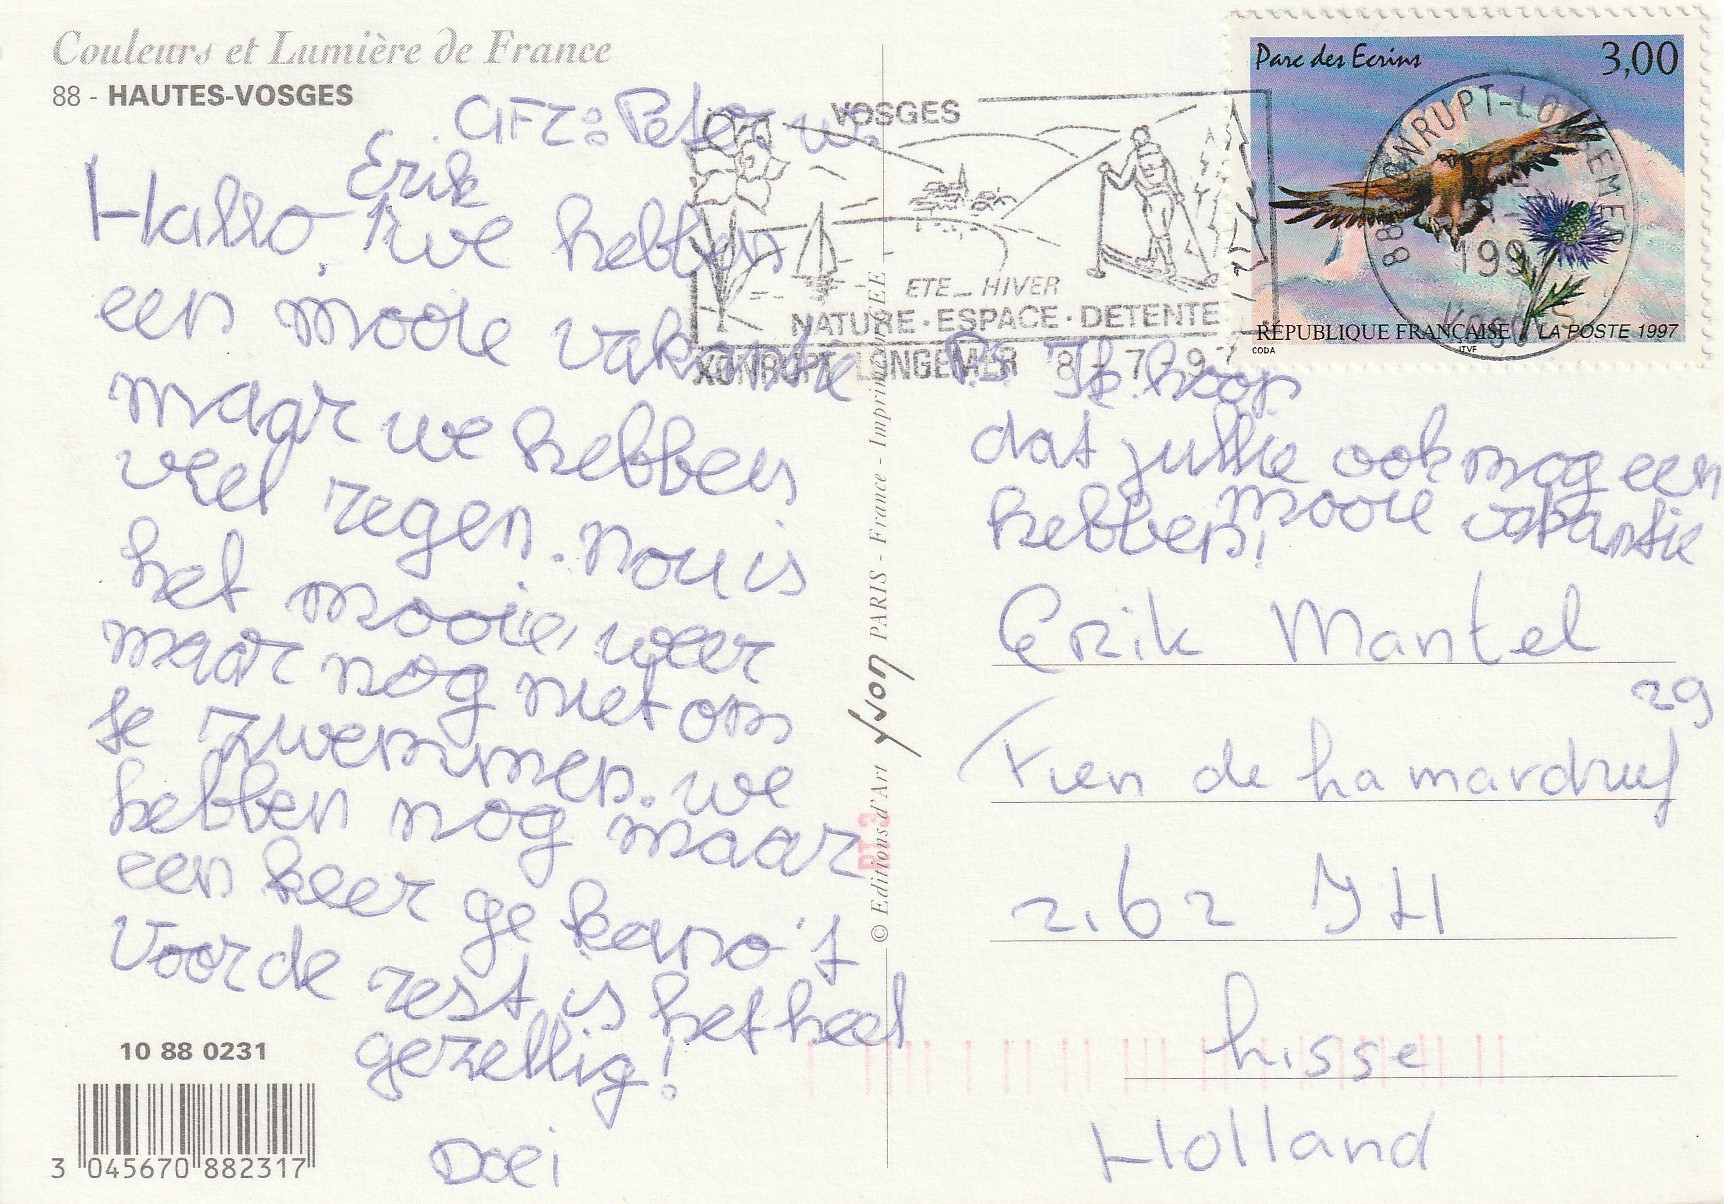 Couleurs et Lumière de France
88 - HAUTES-VOSGES
AFZ: Peter w.
Erik
Hallo, we hebben
een mooie vakantie
maar we hebben
veel regen. nou is
het mooie, weer
maar nog niet om
te zwemmen. we
hebben nog maar
een keer ge kano't
Voor de rest is het heel
gezellig!
Doei
10 88 0231
3 045670 882317
© Editions d'Art Yvon PARIS - France - Imprimé en CEE
VOSGES
ETE - HIVER
NATURE · ESPACE · DETENTE
XONRUPT LONGEMER 8 - 7 - 97
Parc des Ecrins 3,00
88 XONRUPT-LONGEMER
199
VOSGES
RÉPUBLIQUE FRANÇAISE LA POSTE 1997
CODA ITVF
P.S. Ik hoop
dat jullie ook nog een
mooie vakantie
hebben!
Erik Mantel
29
Fien de la mardruf
2162 JH
Lisse
Holland